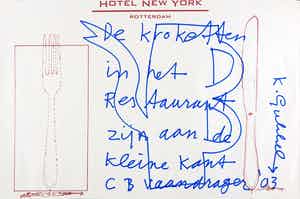 HOTEL NEW YORK
ROTTERDAM
De kroketten
in het
Restaurant
zijn aan de
kleine kant
C B Vaandrager '03